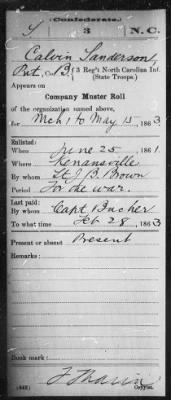 Confederate.
S 3 N.C.
Calvin Sanderson,
Pvt, Co. B, 3 Reg't North Carolina Inf.
(State Troops.)
Appears on
Company Muster Roll
of the organization named above,
for Mch 1 to May 15, 1863
Enlisted:
When June 25, 1861
Where Kenansville
By whom Lt. J. B. Brown
Period For the war.
Last paid:
By whom Capt
To what time Feb 28, 1863
Present or absent Present
Remarks:
Book mark:
Copyist.